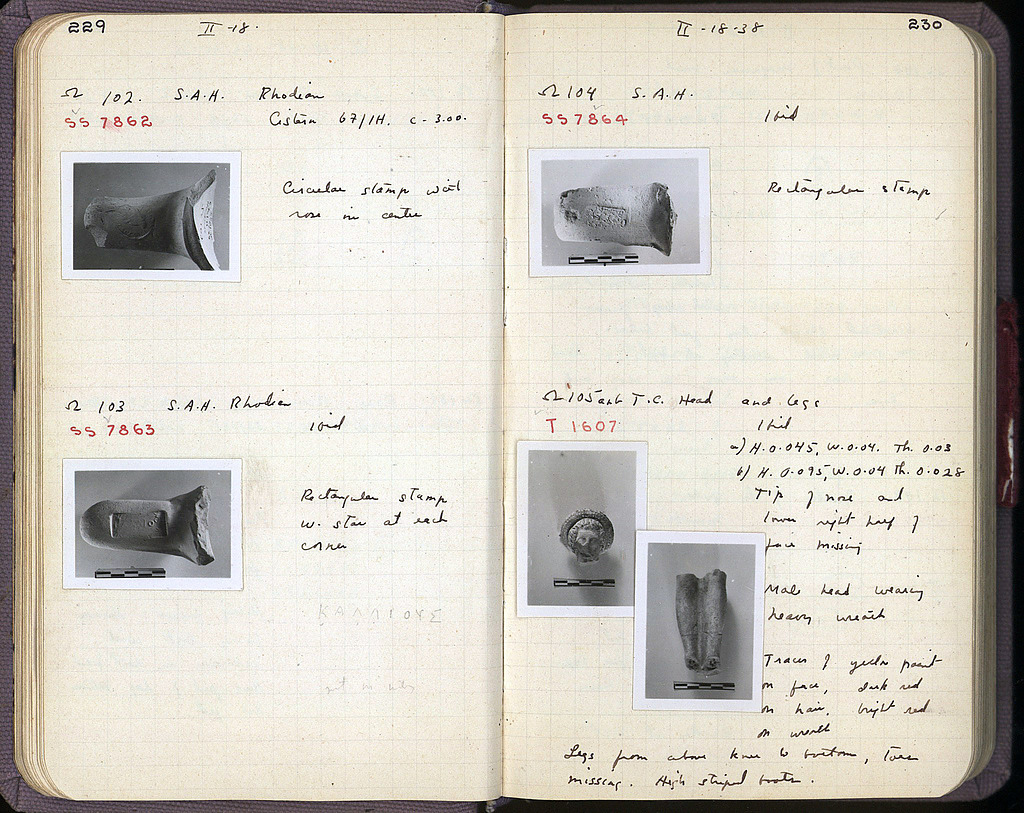 229
II - 18.
Ω 102. S.A.H. Rhodian
SS 7862
Cistern 67/IH. c - 3.00.
Circular stamp with
rose in center
Ω 103 S.A.H. Rhodian
SS 7863
ibid
Rectangular stamp
w. star at each
corner
ΚΑΛΛΙΟΥΣ
230
II - 18-38
Ω 104 S.A.H.
SS 7864
ibid
Rectangular stamp
Ω 105 a+b T.C. Head and legs
T 1607
ibid
a) H. 0.045, W. 0.04. Th. 0.03
b) H. 0.095, W. 0.04 Th. 0.028
Tip of nose and
lower right half of
face missing
Male head wearing
heavy wreath
Traces of yellow paint
on face, dark red
on hair, bright red
on wreath
Legs from above knee to bottom, toes
missing. High striped boots.